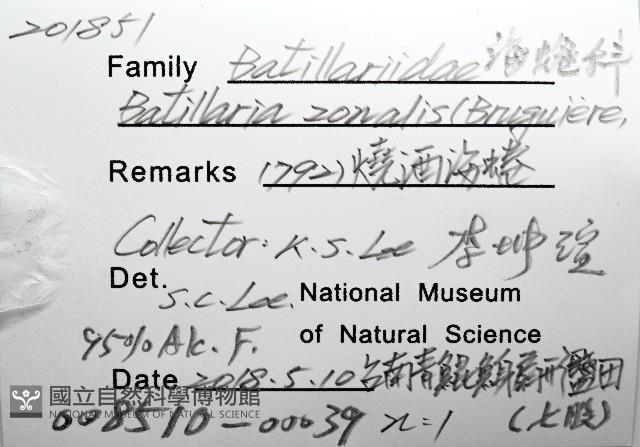 201851
Family Batillariidae 海蜷科
Batillaria zonalis (Bruguière,
Remarks 1792) 燒酒海蜷
Collector: K.S. Lee 李坤瑄
Det. S.C. Lee. National Museum
95% Alc. F. of Natural Science
Date 2018.5.10 台南青鯤鯓新鹽田
國立自然科學博物館
NATIONAL MUSEUM OF NATURAL SCIENCE
008510-00039 n=1 (七股)